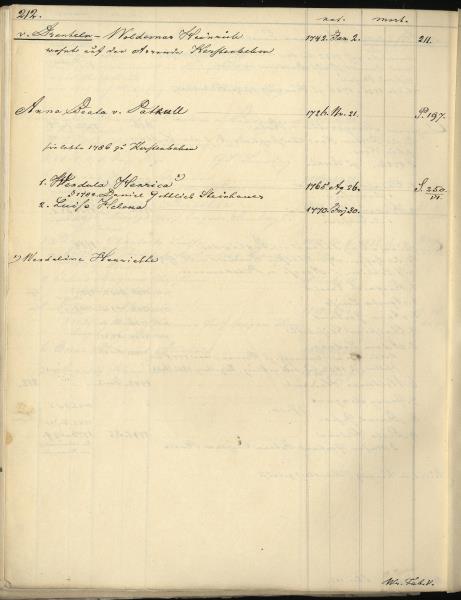 212.
nat. mort.
v. Drenteln - Woldemar Heinrich 1742. Jan 2. 211.
wohnt auf der Arrende Kerstenbehm
Anna Beata v. Patkull 1726. Nv. 21. P. 197.
sie lebte 1786 zu Kerstenbehm
1. Wendula Henrica 1) 1765 Ag 26. S. 250.
1782 Daniel Gottlieb Steinhauer VI.
2. Luise Helena 1770. 30.
1) Wendeline Henriette